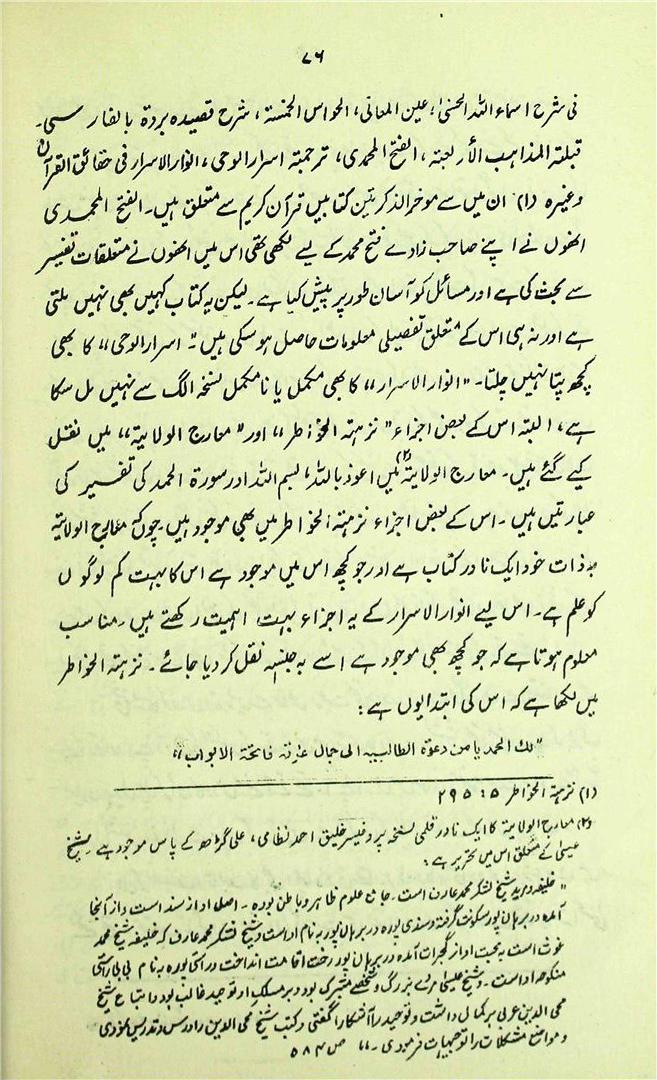 ۷۶
فی شرح اسماء اللہ الحسنیٰ، عین المعانی، الحواس الخمسۃ، شرح قصیدہ بردۃ بالفارسی۔
قبلتہ المذاہب الأربعتہ، الفتح المحمدی، ترجمتہ اسرار الوحی، انوار الاسرار فی حقائق القرآن
وغیرہ (۱) ان میں سے موخر الذکر تین کتابیں قرآن کریم سے متعلق ہیں۔ الفتح المحمدی
انھوں نے اپنے صاحب زادے فتح محمد کے لیے لکھی تھی اس میں انھوں نے متعلقات تفسیر
سے بحث کی ہے اور مسائل کو آسان طور پر پیش کیا ہے۔ لیکن یہ کتاب کہیں بھی نہیں ملتی
ہے اور نہ ہی اس کے متعلق تفصیلی معلومات حاصل ہو سکی ہیں۔ "اسرار الوحی" کا بھی
کچھ پتا نہیں چلتا۔ "انوار الاسرار" کا بھی مکمل یا نامکمل نسخہ الگ سے نہیں مل سکا
ہے، البتہ اس کے بعض اجزاء "نزہتہ الخواطر" اور "معارج الولایتہ" میں نقل
کیے گئے ہیں۔ معارج الولایتہ (۲) میں اعوذ باللہ، بسم اللہ اور سورۃ الحمد کی تفسیر کی
عبارتیں ہیں۔ اس کے بعض اجزاء نزہتہ الخواطر میں بھی موجود ہیں۔ چوں کہ معارج الولایتہ
بہ ذات خود ایک نادر کتاب ہے اور جو کچھ اس میں موجود ہے اس کا بہت کم لوگوں
کو علم ہے۔ اس لیے انوار الاسرار کے یہ اجزاء بہت اہمیت رکھتے ہیں۔ مناسب
معلوم ہوتا ہے کہ جو کچھ بھی موجود ہے اسے بہ جنسہ نقل کر دیا جائے۔ نزہتہ الخواطر
میں لکھا ہے کہ اس کی ابتدا یوں ہے:
"لک الحمد یا من دعوۃ الطالبیہ الی جمال فاتحۃ الابواب"
(۱) نزہتہ الخواطر ۵: ۲۹۵
(۲) معارج الولایتہ کا ایک نادر قلمی نسخہ پروفیسر خلیق احمد نظامی، علی گڑھ کے پاس موجود ہے۔ شیخ
عیسیٰ کے متعلق اس میں تحریر ہے:
"خلیفہ و مرید شیخ لشکر محمد عارف است۔ جامع علوم ظاہر و باطن بودہ۔ اصل او از سندھ است و از آنجا
آمدہ در برہان پور سکونت گرفتہ و سندی پورہ در برہان پور بہ نام او است و شیخ لشکر محمد عارف کہ خلیفہ شیخ محمد
غوث است بہ صحبت او از گجرات آمدہ در برہان پور رخت اقامت انداخت و راستی پورہ بہ نام بی بی راستی
منکوحہ او است۔ و شیخ عیسیٰ مردے بزرگ و شخصے متبرک بود و بر مسلک او توحید غالب بود و اتباع شیخ
محی الدین عربی بر کمال داشت و توحید را آشکارا گفتی و کتب شیخ محی الدین را درس و تدریس نمودی
و مواضع مشکلات را توجیہات فرمودی۔" ص ۵۸۴